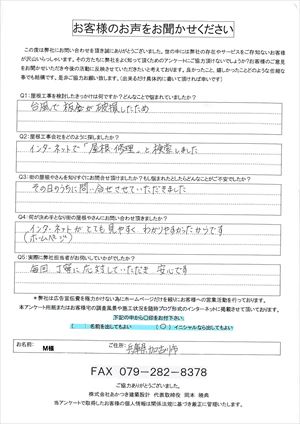 お客様のお声をお聞かせください
この度は弊社にお問い合わせを頂き誠にありがとうございました。世の中には弊社の存在やサービスをご存知ないお客様
が沢山いらっしゃいます。その方たちに弊社をよく知って頂くためのアンケートにご協力頂けないでしょうか？お客様のご意見
をお聞かせいただき今後の活動に反映させていただきたいと考えております。良かったこと、嬉しかったことどのような些細な
事でも結構です。是非ご協力お願い致します。(出来るだけ具体的に書いて頂ければ幸いです)
Q1:屋根工事を検討したきっかけは何ですか？どんなことで悩まれていましたか？
台風で板金が破損したため
Q2:屋根工事会社をどのように探しましたか？
インターネットで「屋根修理」と検索しました
Q3:街の屋根やさんを知りすぐにお問合せ頂けましたか？もし悩まれたとしたらどんなことがご不安でしたか？
その日のうちに問い合せさせていただきました
Q4:何が決め手となり街の屋根やさんにお問い合わせ頂きましたか？
インターネットがとても見やすく わかりやすかったからです
(ホームページ)
Q5:実際に弊社担当者がお伺いしていかがでしたか？
毎回 丁寧に応対していただき 安心です
＊弊社は広告宣伝費を極力かけない為にホームページだけを頼りにお客様への営業活動を行っております。
本アンケート用紙またはお客様宅の調査風景や施工状況を随時ブログ形式のインターネットに掲載させて頂いております。
下記の中から〇印をお付下さい。
( ) 名前を出してもよい (〇) イニシャルなら出してもよい
お名前: M様 ご住所: 兵庫県加古川市
FAX 079-282-8378
ご協力ありがとうございました。
株式会社あかつき建築設計 代表取締役 岡本 暁典
当アンケートで取得したお客様の個人情報は関係法規に基づき厳正に管理いたします。